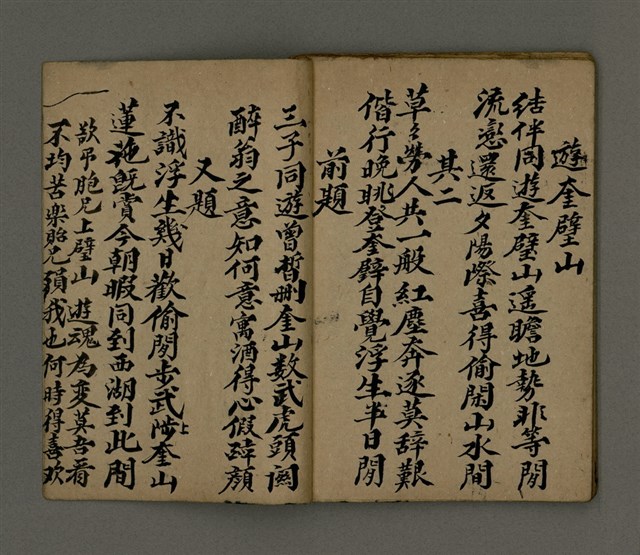 遊奎壁山
結伴同遊奎壁山遥瞻地勢非等閒
流戀還返夕陽際喜得偷閑山水間
其二
草々勞人共一般紅塵奔逐莫辞艱
偕行晚眺登奎壁自覺浮生半日閒
前題
三子同遊曾暫刪奎山數武虎頭関
醉翁之意知何意寓酒得心假韓顏
又題
不識浮生幾日歡偷閒步武陟上奎山
蓮花既賞今朝暇同到西湖到此間
欲吊胞兄上壁山遊魂為変莫吾看
不均苦樂貽兄須我也何時得喜欢